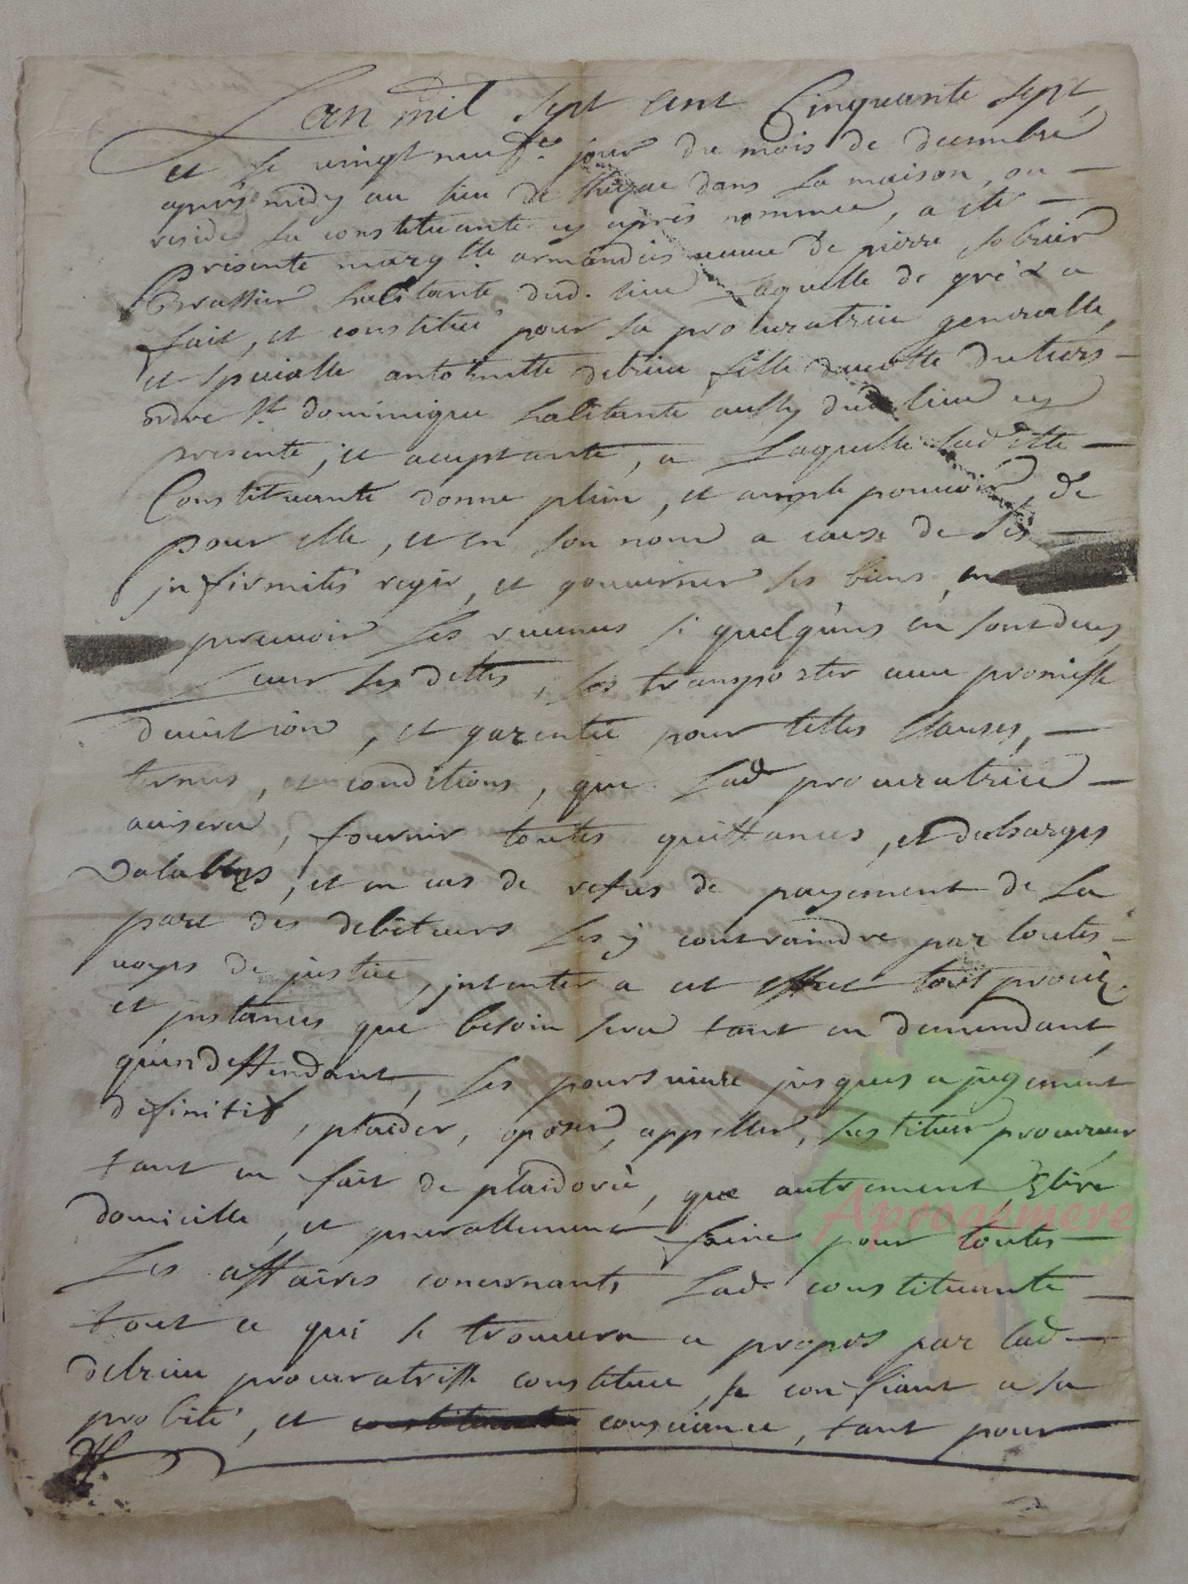 Lan mil sept cent Cinquante sept,
et le vingt neufe. jour du mois de decembre
apres midy au lieu de dans la maison, ou
reside la constituante cy apres nommée, a eté
presente margtte. armandies veuve de pierre
Brassier habitante dud. lieu laquelle de gré a
fait, et constitué pour sa procuratrice generalle,
et specialle antoinette debrieu fille devotte du tiers
ordre St. dominique habitante aussy dud. lieu cy
presente, et acceptante, a Laquelle ladite
Constituante donne plein, et ample pouvoir, de
pour elle, et en son nom a cause de ses
infirmités regir, et gouverner ses biens, en
percevoir les revenus si quelqu'uns en sont deus,
Lever ses dettes, les transporter avec promesse
deviction, et garentie pour telles clauses,
termes, et conditions, que lad procuratrice
avisera, fournir toutes quittances, et decharges
valables, et en cas de refus de payement de la
part des debiteurs les y contraindre par toutes
voyes de justice, intenter a cet effect tout procès
et instances que besoin sera tant en demendant,
qu'en deffendant, les poursuivre jusques a jugement
definitif, plaider, oposer, appeller, substituer procureur
tant en fait de plaidorie, que autrement, Elire
domicille, et generallement faire pour toutes
Les affaires concernants Lad. constituante
tout ce qui se trouvera a propos par lad
debrieu procuratrisse constituée, se confiant a sa
probité, et consciance, tant pour
Aprogemere